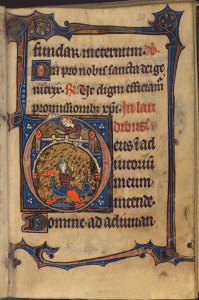 fundar meternum. 
Ora pro nobis sancta dei ge
nitrix. R. Vt digni efficiam
promissionibz xpi. In lau
dibus.
Deus i ad
iutorium
meum
intende.
Domine ad adiuuan